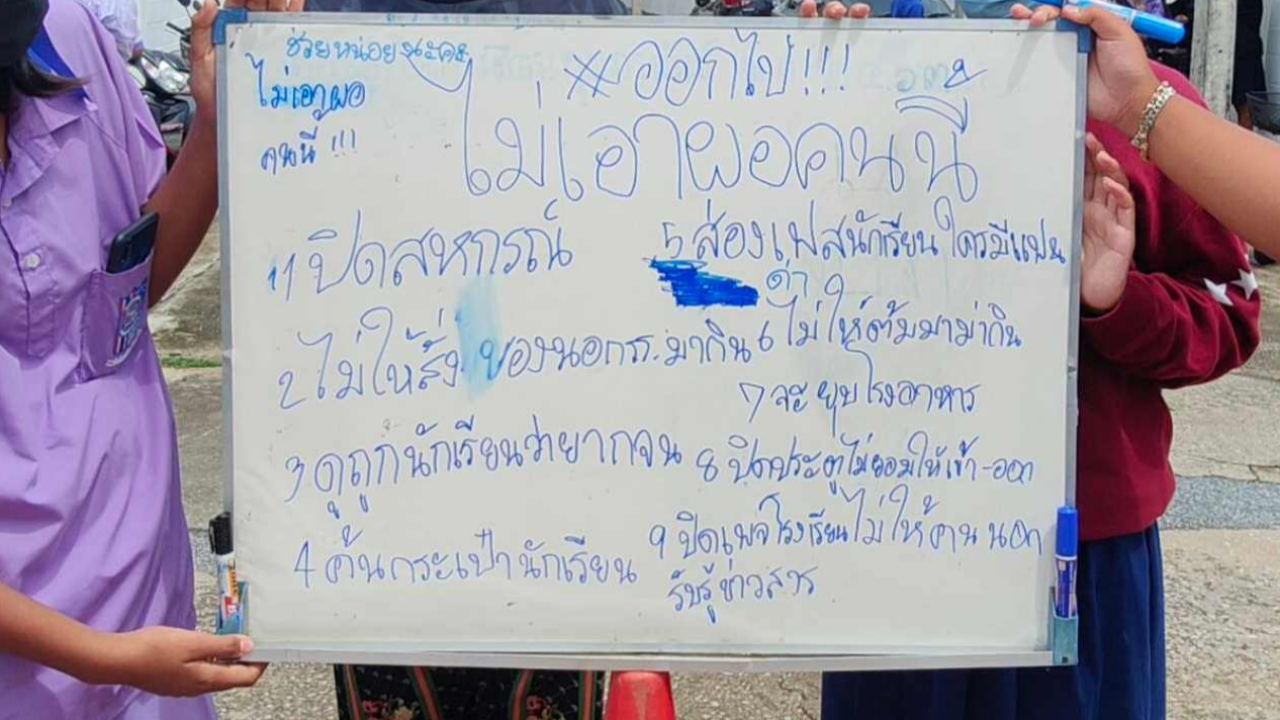 ช่วยหน่อยนะคะ
ไม่เอาผอ
คนนี้ !!!
#ออกไป!!!
ไม่เอาผอคนนี้
1 ปิดสหกรณ์
2 ไม่ให้สั่งของนอกรร.มากิน
3 ดูถูกนักเรียนว่ายากจน
4 ค้นกระเป๋านักเรียน
5 ส่องเฟสนักเรียนใครมีแฟน
ด่า
6 ไม่ให้ต้มมาม่ากิน
7 จะยุบโรงอาหาร
8 ปิดประตูไม่ยอมให้เข้า-ออก
9 ปิดเพจโรงเรียนไม่ให้คนนอก
รับรู้ข่าวสาร